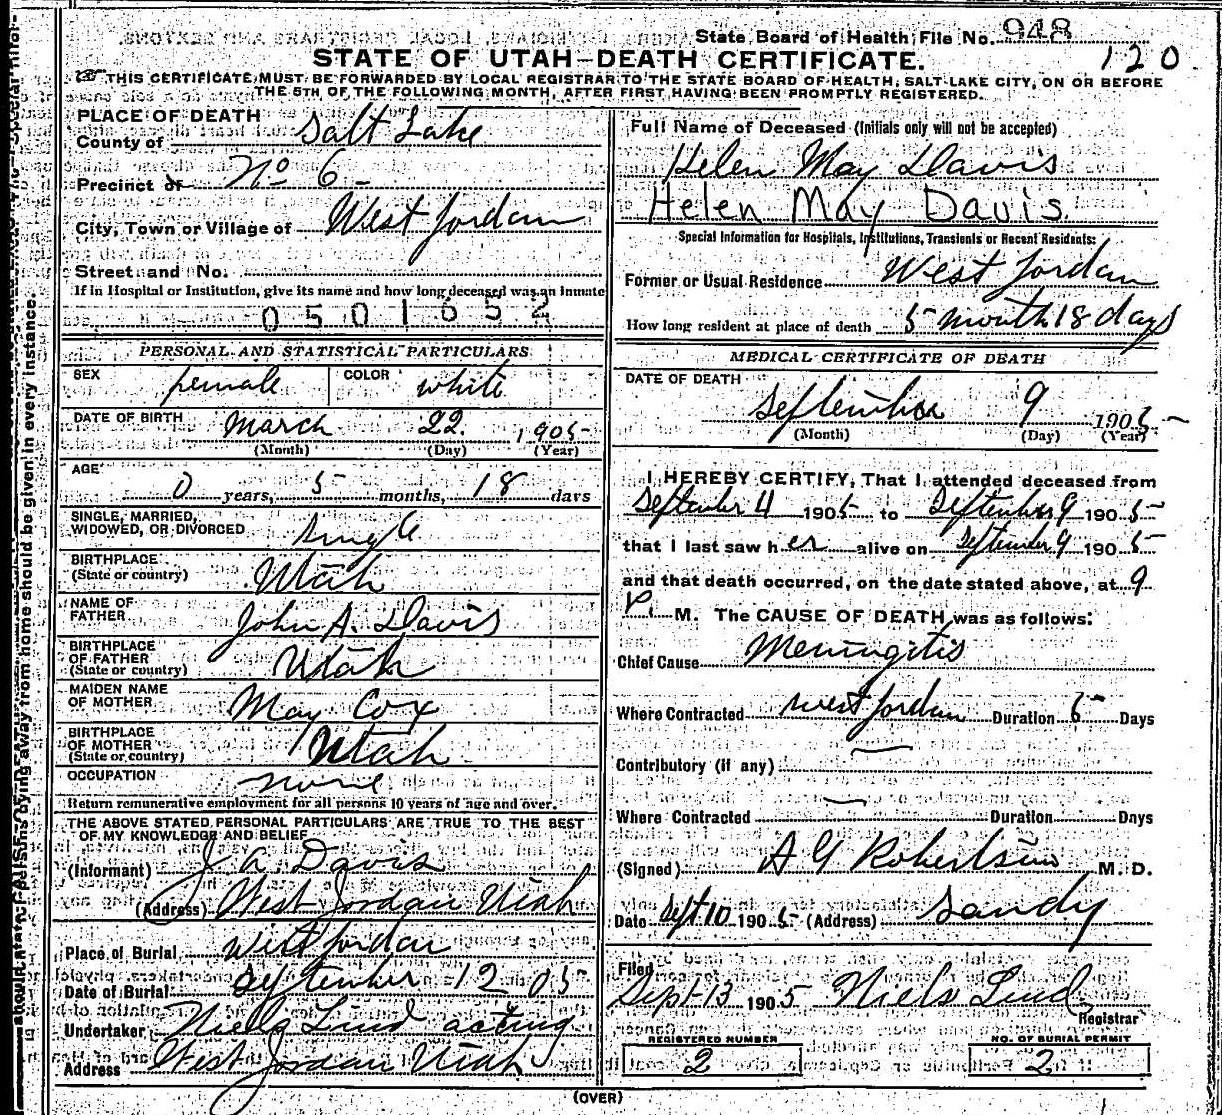 State Board of Health File No. 948
120.
STATE OF UTAH-DEATH CERTIFICATE.
THIS CERTIFICATE MUST BE FORWARDED BY LOCAL REGISTRAR TO THE STATE BOARD OF HEALTH, SALT LAKE CITY, ON OR BEFORE
THE 5TH OF THE FOLLOWING MONTH, AFTER FIRST HAVING BEEN PROMPTLY REGISTERED.
PLACE OF DEATH
County of Salt Lake
Precinct of No 6
City, Town or Village of West Jordan
Street and No.
If in Hospital or Institution, give its name and how long deceased was an inmate
0501652
PERSONAL AND STATISTICAL PARTICULARS
SEX female COLOR white
DATE OF BIRTH March 22 1905
(Month) (Day) (Year)
AGE
0 years, 5 months, 18 days
SINGLE, MARRIED,
WIDOWED, OR DIVORCED single
BIRTHPLACE
(State or country) Utah
NAME OF
FATHER John A. Davis
BIRTHPLACE
OF FATHER
(State or country) Utah
MAIDEN NAME
OF MOTHER May Cox
BIRTHPLACE
OF MOTHER
(State or country) Utah
OCCUPATION none
Return remunerative employment for all persons 10 years of age and over.
THE ABOVE STATED PERSONAL PARTICULARS ARE TRUE TO THE BEST
OF MY KNOWLEDGE AND BELIEF
(Informant) J. A. Davis
(Address) West Jordan Utah
Place of Burial West Jordan
Date of Burial September 12 05
Undertaker Niels Lind acting
Address West Jordan Utah
Full Name of Deceased (Initials only will not be accepted)
Helen May Davis
Helen May Davis.
Special Information for Hospitals, Institutions, Transients or Recent Residents:
Former or Usual Residence West Jordan
How long resident at place of death 5 month 18 days
MEDICAL CERTIFICATE OF DEATH
DATE OF DEATH
September 9 1905
(Month) (Day) (Year)
I HEREBY CERTIFY, That I attended deceased from
September 4 1905 to September 9 1905
that I last saw her alive on September 9 1905
and that death occurred, on the date stated above, at 9
P. M. The CAUSE OF DEATH was as follows:
Chief Cause Meningitis
Where Contracted West Jordan Duration 6 Days
Contributory (if any)
Where Contracted Duration Days
(Signed) A G Robertson M. D.
Date Sept 10 1905 (Address) Sandy
Filed
Sept 13 1905 Niels Lind
Registrar
REGISTERED NUMBER
2
NO. OF BURIAL PERMIT
2
(OVER)